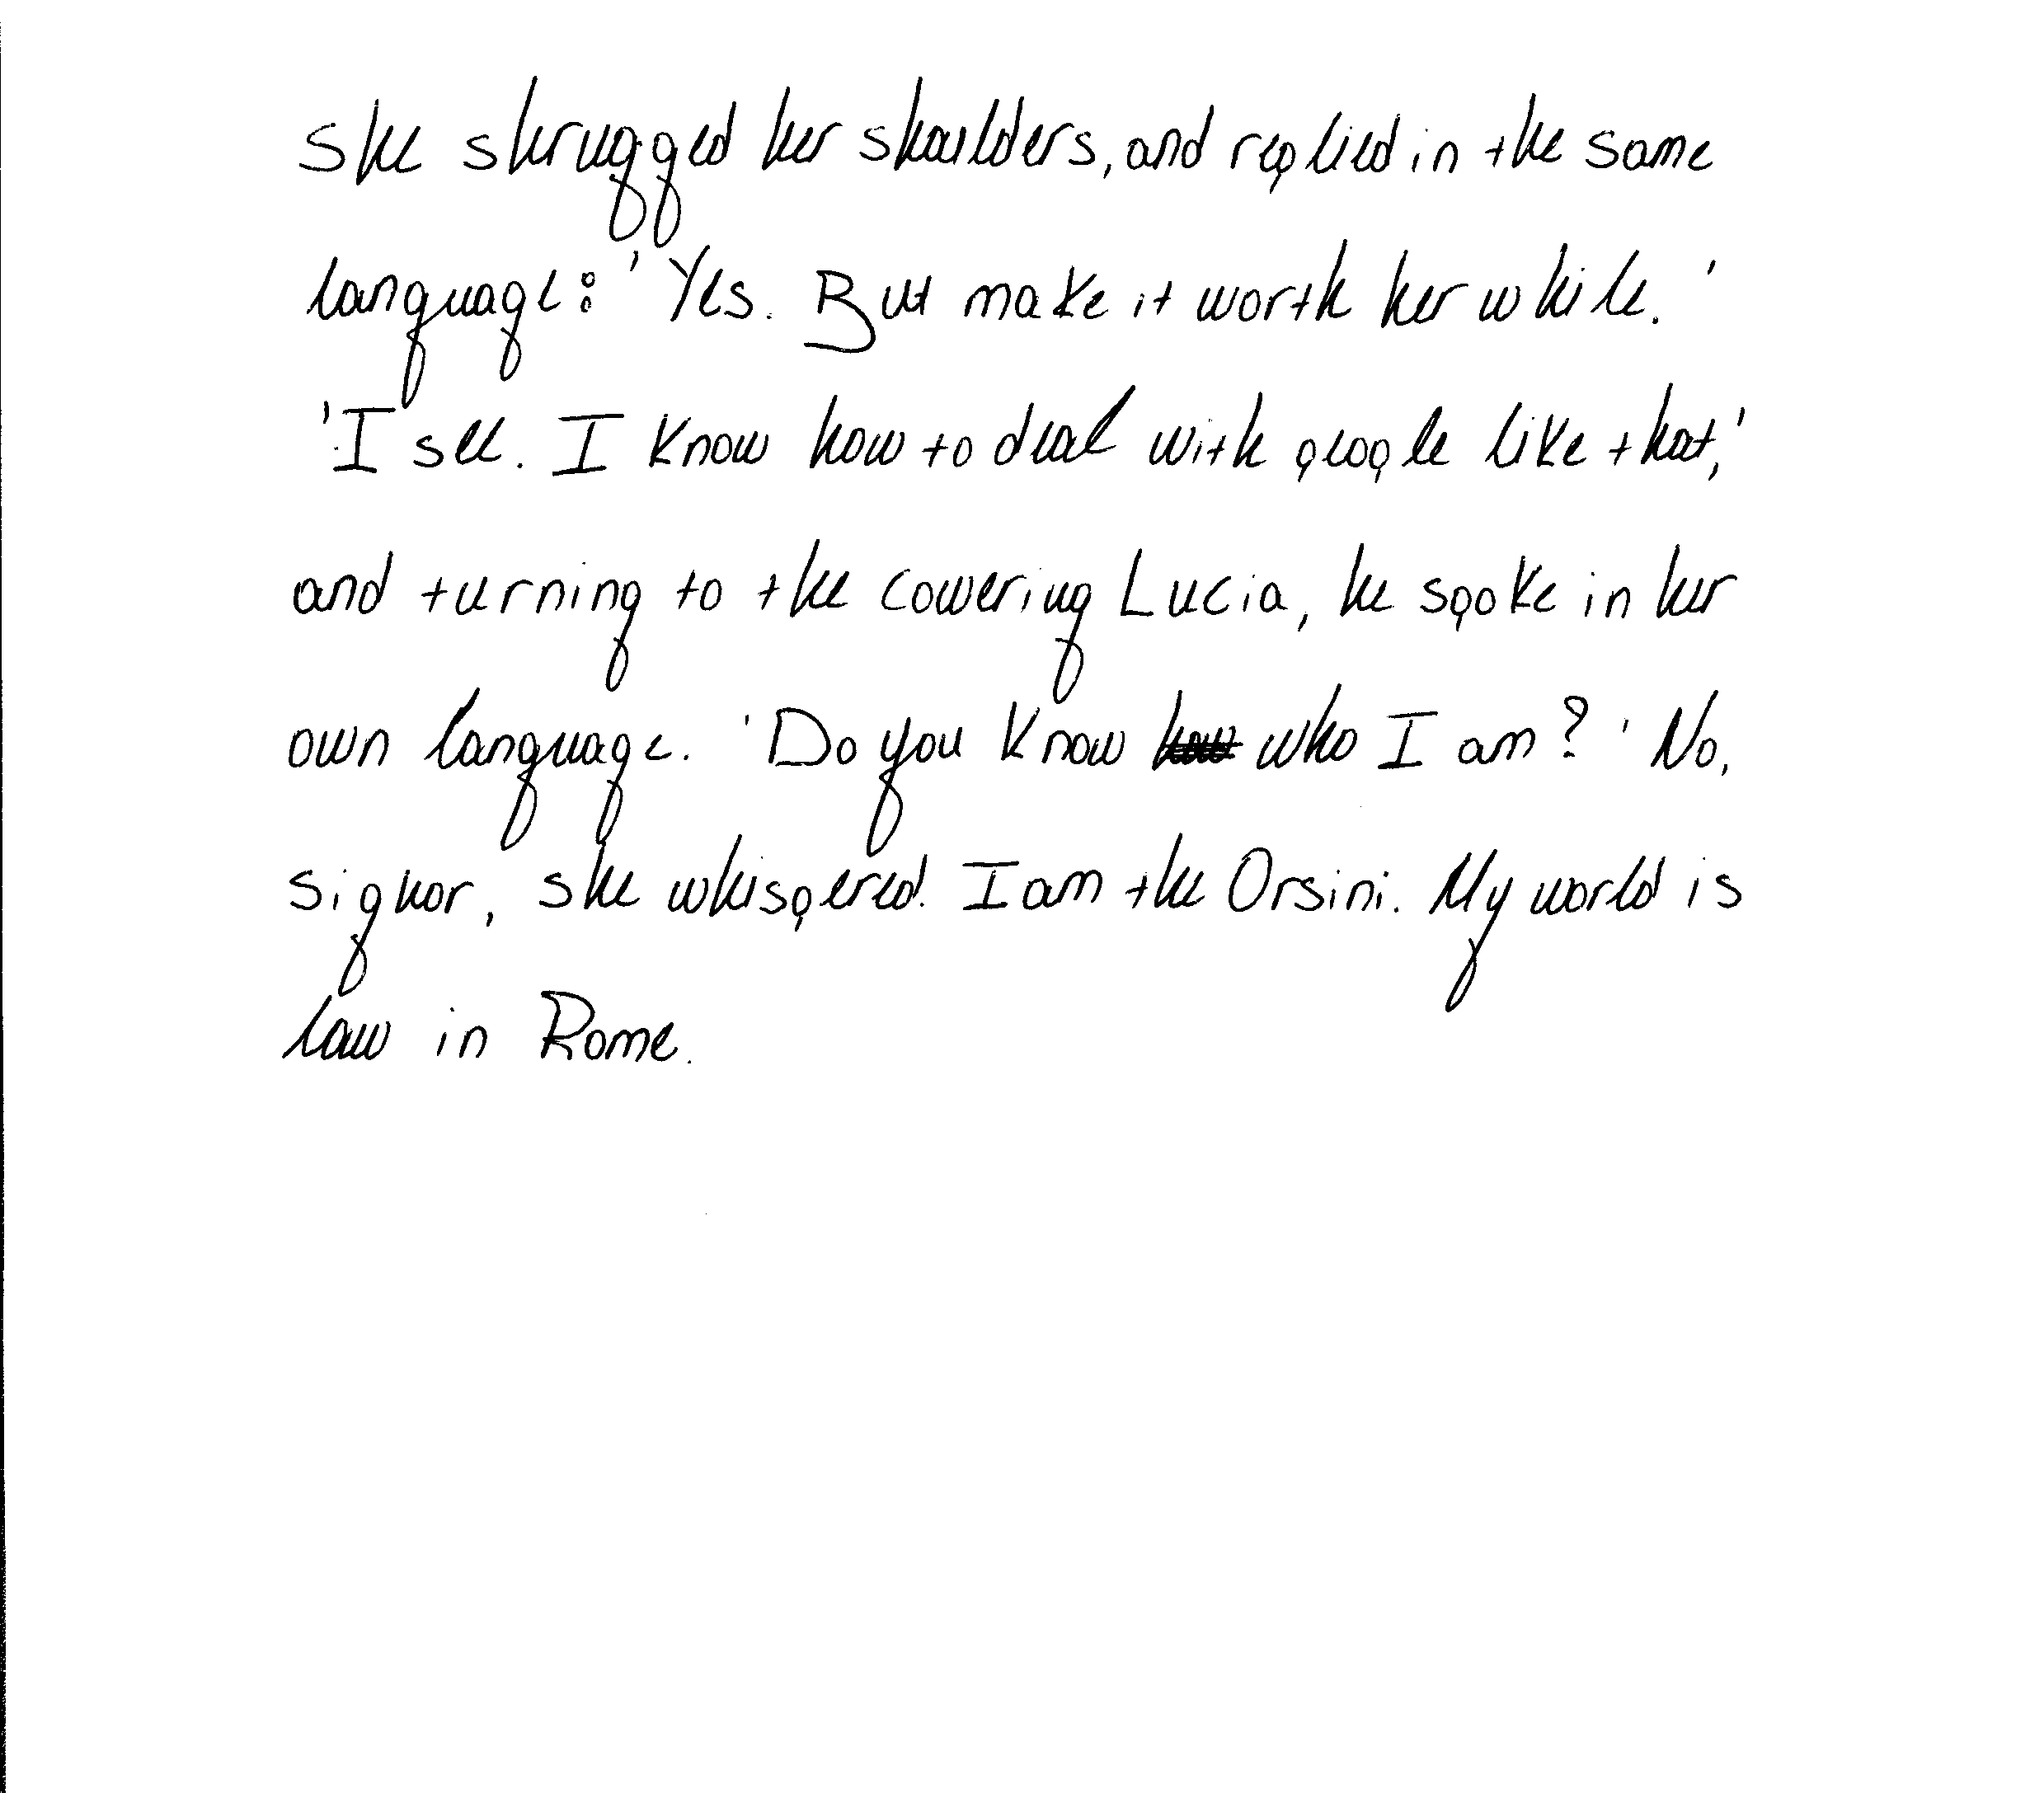 She shrugged her shoulders, and replied in the same
language: 'Yes. But make it worth her while.'
'I see. I know how to deal with people like that,'
and turning to the cowering Lucia, he spoke in her
own language. 'Do you know who I am? 'No,
signor, she whispered. I am the Orsini. My world is
law in Rome.